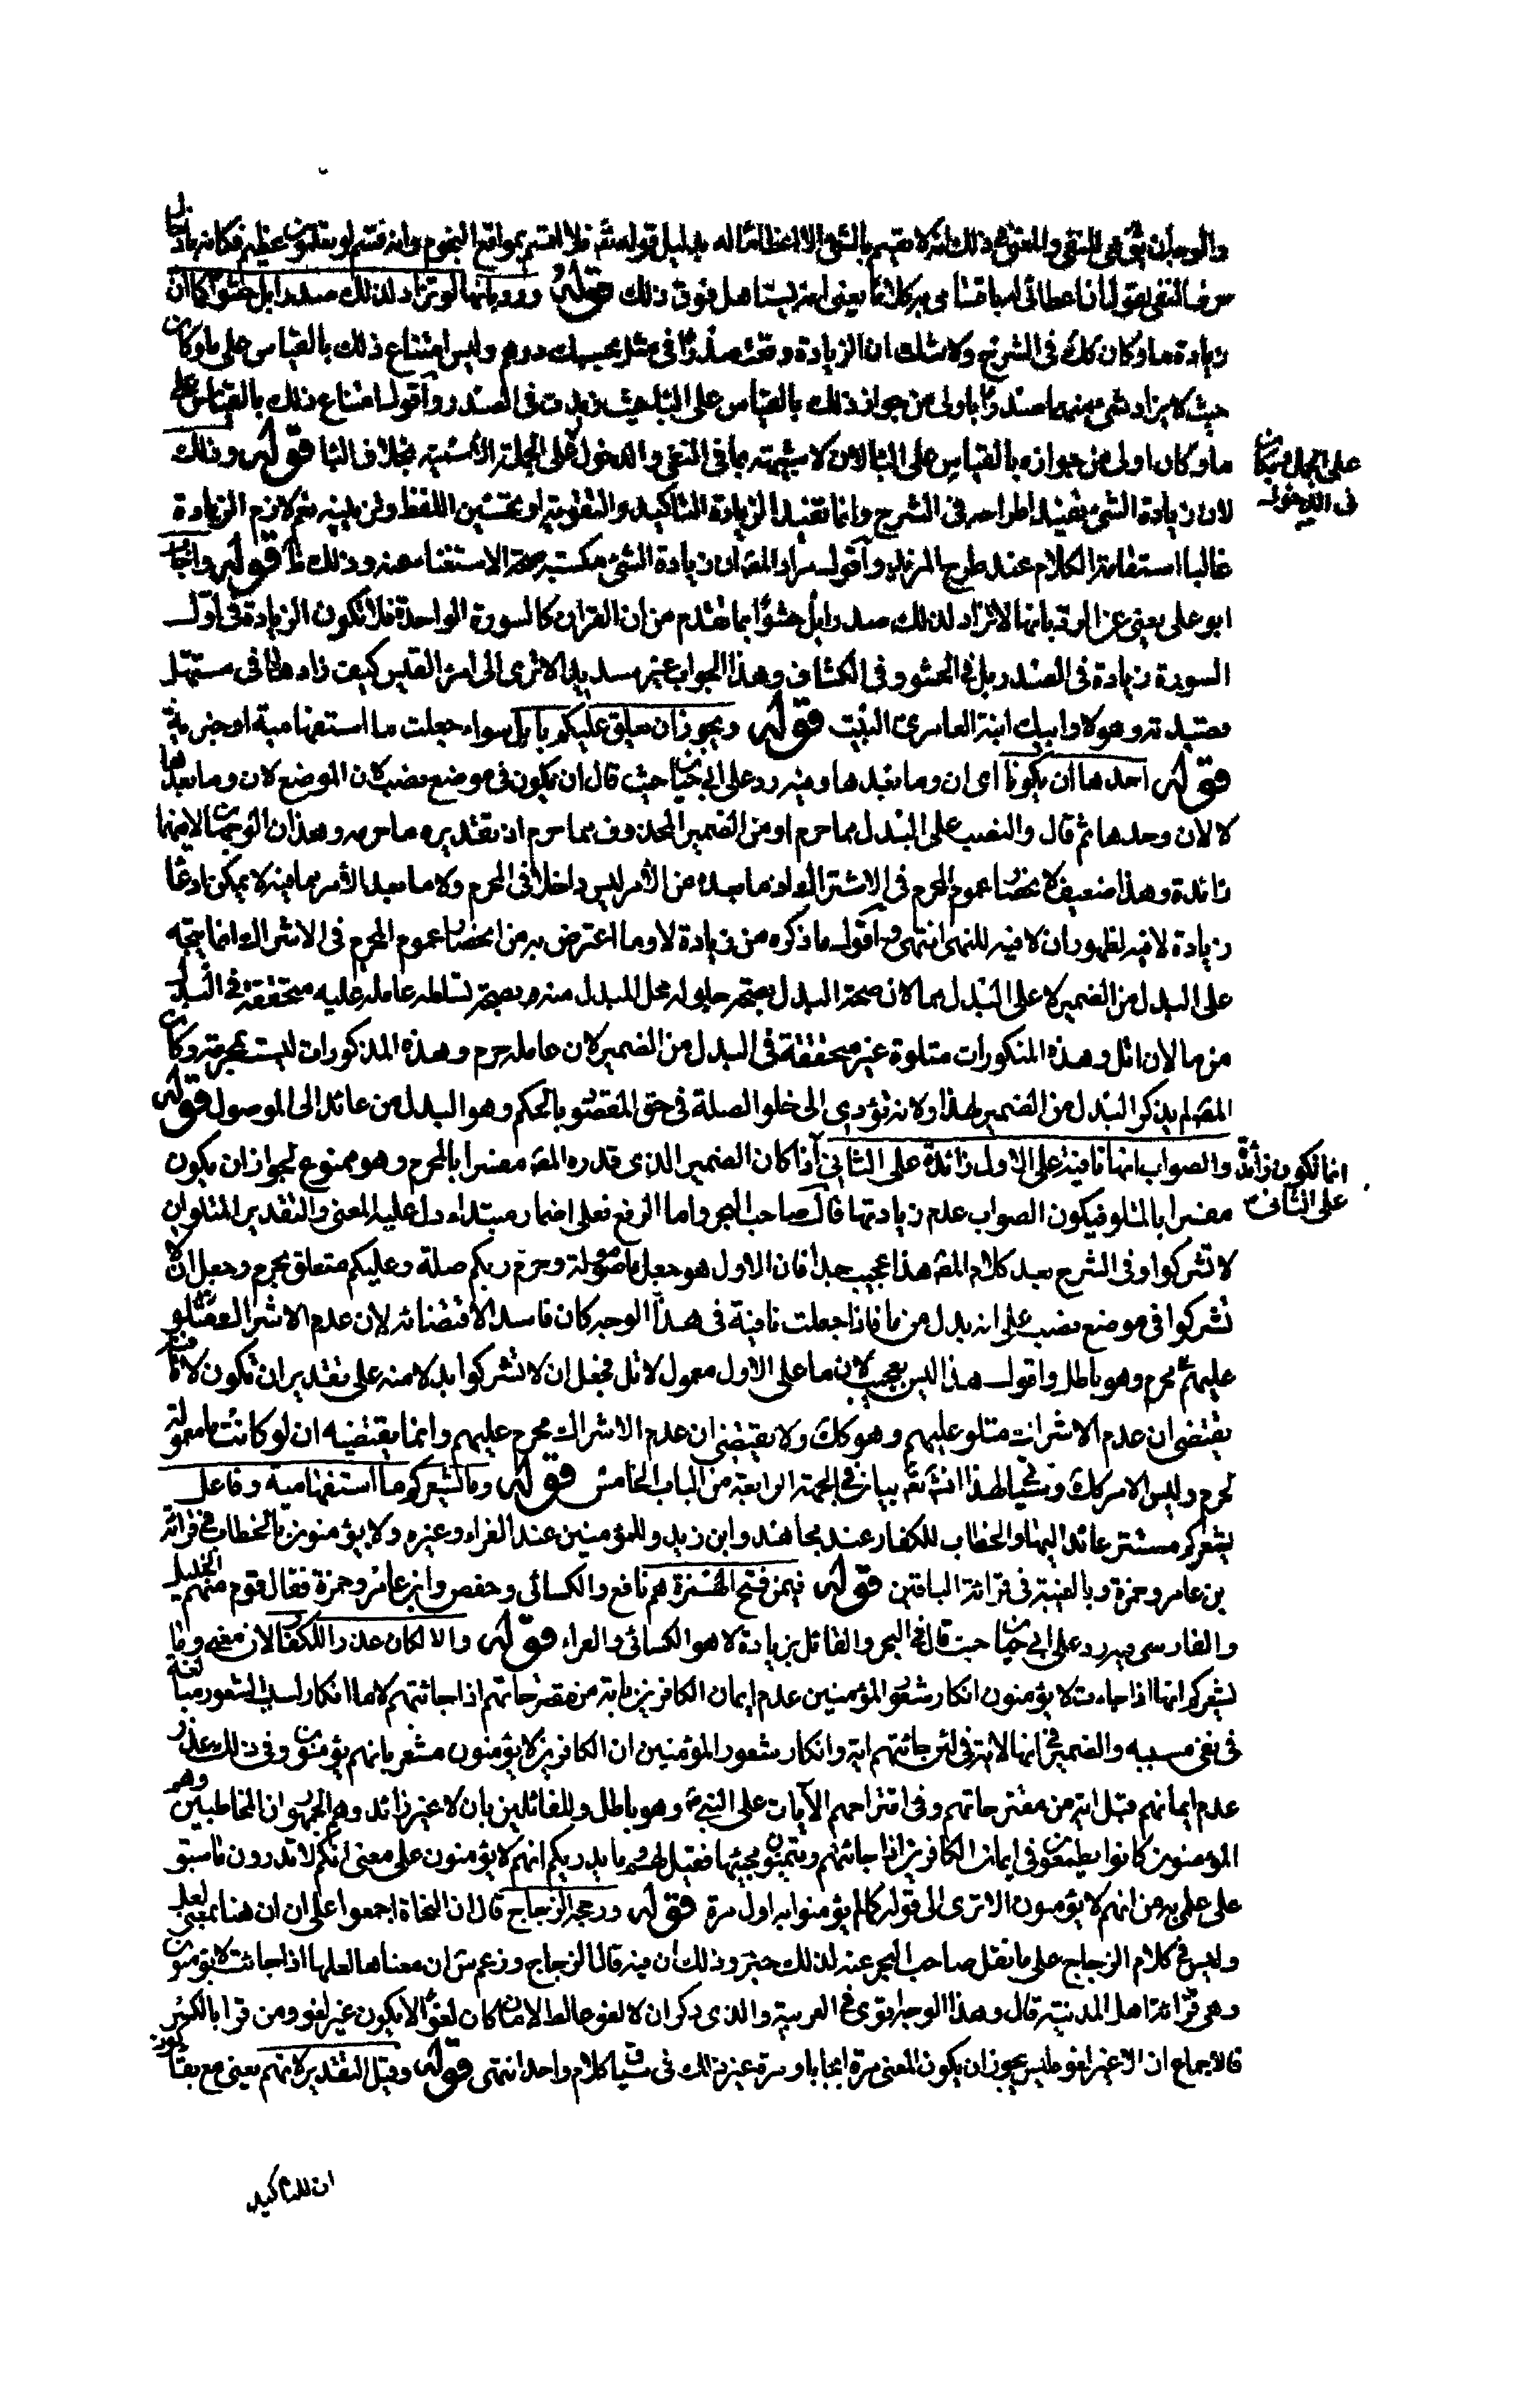 والوجه أن يق هي للنفي والمعنى في ذلك انه لا يقسم بالشئ الا اعظاما له بدليل قوله تعه فلا اقسم بمواقع النجوم وانه لقسم لو تعلمون عظيم فكانه بادخال
حرف النفي يقول ان اعطائي اياه قسما مي به كلا اعظام يعني انه يستاهل فوق ذلك قوله ورد بانها لا تزاد لذلك صدرا بل حشوا كما ان
زيادة ما وكان كك في الشرح ولا شك ان الزيادة وقعت صدرا في مثل بحسبك درهم وليس امتناع ذلك بالقياس على ما وكان
حيث لا يزاد شئ منهما صدرا باولى من جواز ذلك بالقياس على الباء حيث زيدت في الصدر واقول امتناع ذلك بالقياس على
ما وكان اولى من جوازه بالقياس على الباء لان لا شبيهة بما في النفي والدخول على الجملة الاسمية بخلاف الباء قوله وذلك
على الجمل وبكان
في الدخول
لان زيادة الشئ يفيد اطراحه في الشرح وانما تفيد الزيادة التاكيد والتقوية او تحسين اللفظ وتزيينه نعم لازم الزيادة
غالبا استقامة الكلام عند طرح المزيد واقول مراد المصه ان زيادة الشئ مكسبة صحة الاستغناء عنه وذلك ظ قوله واجاب
ابو علي يعني عن الرد بانها لا تزاد لذلك صدرا بل حشوا بما تقدم من ان القران كالسورة الواحدة فلا تكون الزيادة في اول
السورة زيادة في الصدر بل في الحشو وفي الكشاف وهذا الجواب غير سديد الا ترى الى امرئ القيس كيف زادها في مستهل
قصيدته وهو لا وابيك ابنة العامري البيت قوله ويجوز ان يعلق عليكم باتل سواء جعلت ما استفهامية او خبرية
قوله احدها ان يكونا اي ان وما بعدها وفيه رد على ابي حيان حيث قال ان يكون في موضع نصب لان الموضع لان وما بعدها
لا لان وحدها ثم قال والنصب على البدل مما حرم او من الضمير المحذوف مما حرم اذ تقديره ما حرمه وهذان الوجهان لا فيهما
زائدة وهذا ضعيف لانحصار عموم المحرم في الاشراك اذ ما بعده من الأمر ليس داخلا في المحرم ولا ما بعد الأمر مما فيه لا يمكن ادعاء
زيادة لا فيه لظهور ان لا فيه للنهي انتهى واقول ما ذكره من زيادة لا وما اعترض به من انحصار عموم المحرم في الاشراك انما يتجه
على البدل من الضمير لا على البدل مما لان صحة البدل بصحة حلوله محل المبدل منه وبصحة تسلط عامله عليه متحققة في البدل
من ما لان اتل وهذه المذكورات متلوة غير متحققة في البدل من الضمير لان عامله حرم وهذه المذكورات ليست بمحرمة وكان
المصه لم يذكر البدل من الضمير لهذا ولانه يؤدي الى خلو الصلة في حق المقصود بالحكم وهو البدل من عائد الى الموصول قوله
والصواب انها نافية على الاول زائدة على الثاني اذا كان الضمير الذي قدره المصه مفسرا بالمحرم وهو ممنوع لجواز ان يكون
انما تكون زائدة
على الثاني
مفسرا بالمتلو فيكون الصواب عدم زيادتها قال صاحب البحر واما الرفع فعلى اضمار مبتداء دل عليه المعنى والتقدير المتلو ان
لا تشركوا وفي الشرح بعد كلام المصه هذا عجيب جدا فان الاول هو جعل ما موصولة وحرم ربكم صلة وعليكم متعلق بحرم وجعل ان لا
تشركوا في موضع نصب على انه بدل من ما فاذا جعلت نافية في هذا الوجه كان فاسدا لاقتضائه لان عدم الاشراك متلو
عليهم محرم وهو باطل واقول هذا ليس بعجيب لان ما على الاول معمول لاتل فجعل ان لا تشركوا بدلا منه على تقدير ان تكون لا نافية
يقتضي ان عدم الاشراك متلو عليهم وهو كك ولا يقتضي ان عدم الاشراك محرم عليهم وانما يقتضيه ان لو كانت ما معمولة
لحرم وليس الامر كك وسيجئ لهذا انشه تعه بيان في الجهة الرابعة من الباب الخامس قوله وما يشعركم ما استفهامية وفاعل
يشعركم مستتر عائد اليها والخطاب للكفار عند مجاهد وابن زيد وللمؤمنين عند الفراء وغيره ولا يؤمنون بالخطاب في قرائة
بن عامر وحمزة وبالغيبة في قرائة الباقين قوله فيمن فتح الهمزة هم نافع والكسائي وحفص وابن عامر وحمزة فقال قوم منهم الخليل
والفارسي فيه رد على ابي حيان حيث قال في البحر والقائل بزيادة لا هو الكسائي والفراء قوله والا لكان عذرا للكفار لان معنى وما
يشعركم انها اذا جاءت لا يؤمنون انكار شعور المؤمنين عدم ايمان الكافرين باية من مقترحاتهم اذا جائتهم لا ما انكار لسبب الشعور مبالغة
في نفي مسببه والضمير في انها لاية في لئن جائتهم اية وانكار شعور المؤمنين ان الكافرين لا يؤمنون مشعر بانهم يؤمنون وفي ذلك عذر
عدم ايمانهم قبل اية من مقترحاتهم وفي اقتراحهم الآيات على النبي ص وهو باطل وللقائلين بان لا غير زائد وهم الجمهور ان المخاطبين وهم
المؤمنون كانوا يطمعون في ايمان الكافرين اذا جائتهم ويتمنون مجيئها فقيل لهم وما يدريكم انهم لا يؤمنون على معنى انكم لا تدرون ما سبق
على علمي به من انهم لا يؤمنون الا ترى الى قوله كما لم يؤمنوا به اول مرة قوله ورجحه الزجاج قال ان النحاة اجمعوا على ان ان هنا بمعنى لعل
وليس في كلام الزجاج على ما نقل صاحب البحر عنه لذلك خبر وذلك ان فيه قال الزجاج وزعم س ان معناها لعلها اذا جائت لا يؤمنون
وهي قرائة اهل المدينة قال وهذا الوجه اقوى في العربية والذي ذكر ان لا لغو غالط لان ما كان لغوا لا يكون غير لغو ومن قرا بالكسر
فالاجماع ان لا غير لغو فليس يجوز ان يكون المعنى مرة ايجابا ومرة غير ذلك في سياق كلام واحد انتهى قوله وقيل التقدير لانهم يعني مع بقاء كون
ان للتاكيد